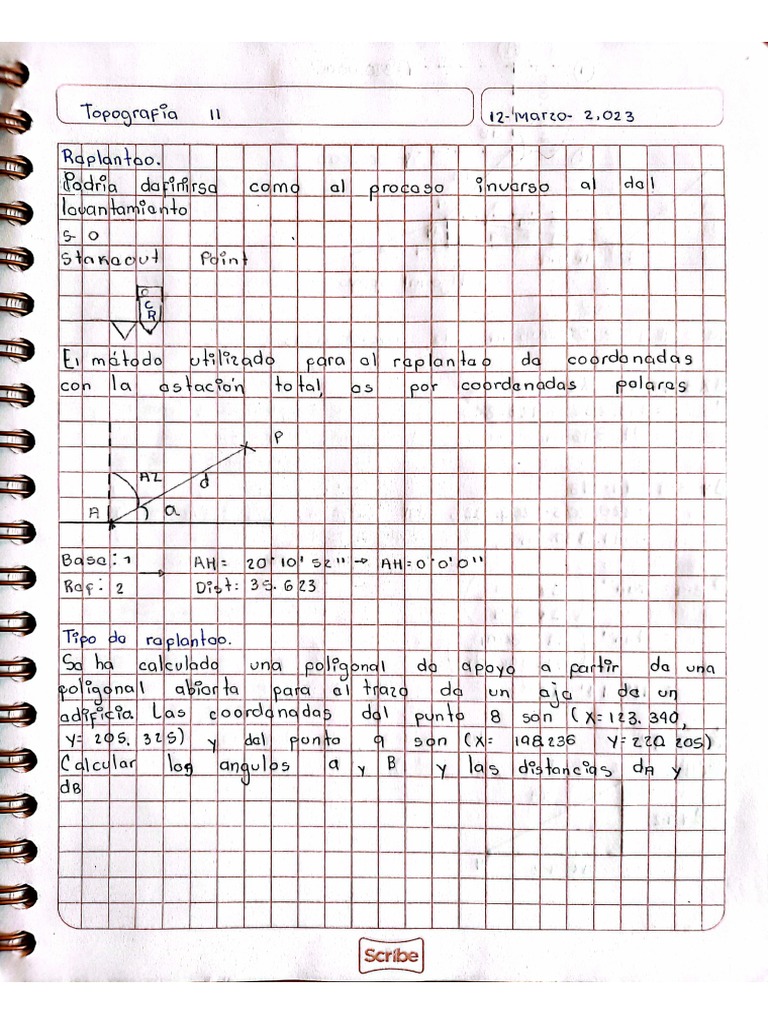 Topografía II
12-Marzo-2,023
Replanteo.
Podria definirse como el proceso inverso al del
levantamiento
S-O
Stakeout Point
O
C
R
El método utilizado para el replanteo de coordenadas
con la estación total, es por coordenadas polares
P
AZ
d
A
a
Base: 1 → AH= 20°10'52" → AH=0°0'0"
Ref: 2 Dist: 35.623
Tipo de replanteo.
Se ha calculado una poligonal de apoyo a partir de una
poligonal abierta para el trazo de un eje de un
edificio. Las coordenadas del punto 8 son (X=123.340,
Y= 205.325) y del punto 9 son (X= 198.236 Y=220.205)
Calcular los angulos a y B y las distancias dA y
dB
Scribe